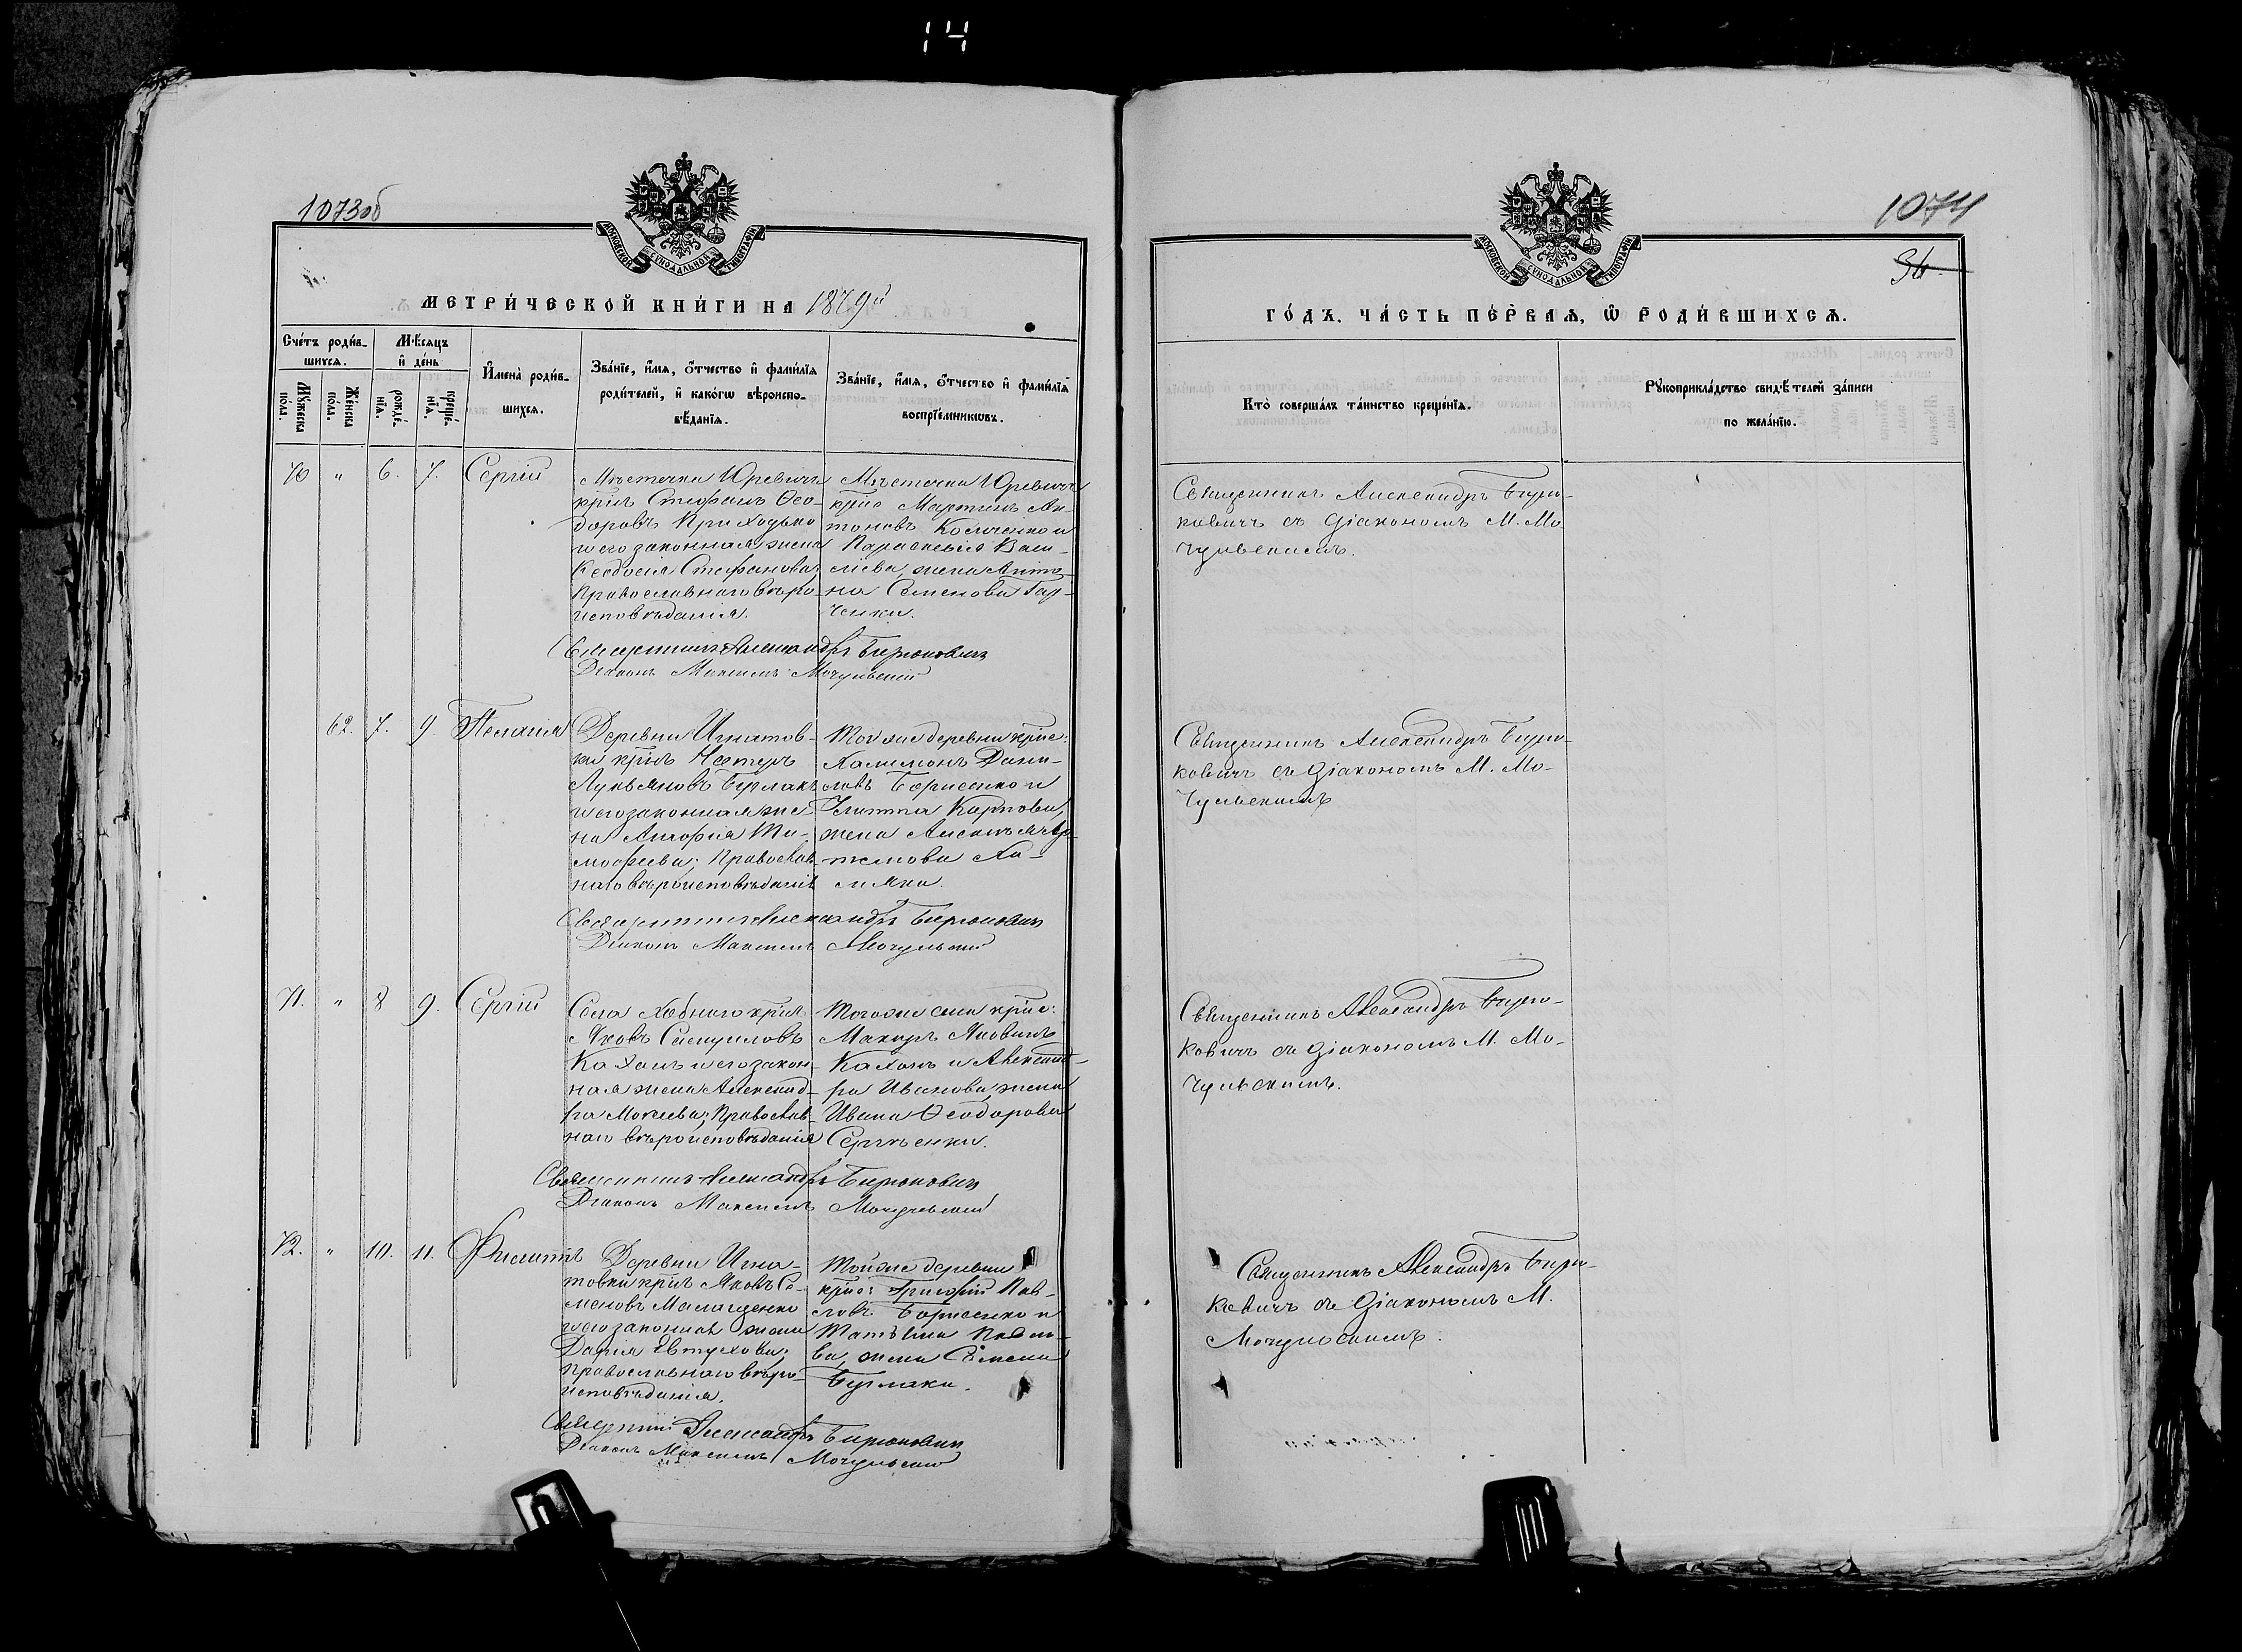 14
1073об
МОСКОВСКОЙ СУНОДАЛЬНОЙ ТИПОГРАФІИ
МЕТРИ́ЧЕСКОЙ КНИ́ГИ НА 1879й
Сче́тъ роди́в-
шихся.
Му́жеска
по́ла.
Же́нска
по́ла.
Мѣ́сяцъ
и҆ де́нь
рожде́-
нїя.
креще́-
нїя.
И҆мена̀ роди́в-
шихся.
Зва́нїе, и҆́мя, ѻ҆́тчество и҆ фами́лїя
роди́телей, и҆ како́гѡ вѣроиспо-
вѣ́данїя.
Зва́нїе, и҆́мя, ѻ҆́тчество и҆ фами́лїя
воспрїе́мникѡвъ.
70 " 6. 7. Сергій
Мѣстечка Юревичъ
крⷭ҇нъ Стефанъ Ѳео-
доровъ Приходько
и его законная жена
Ѳеодосія Стефанова;
Православнаго вѣро-
исповѣданія.
Мѣстечка Юревичъ
Мартинъ Ан-
тоновъ и
Параскевія Васи-
ліева, жена Анто-
на Семенова Гар-
ченки.
Священникъ Александръ Бирюковичъ
Діаконъ Максимъ Мочульскій
62. 7. 9. Пелагія
Деревни Игнатов-
ки Несторъ
Лукьяновъ Бурлака
и его законная же-
на Ти-
мофеева; Православ-
наго вѣроисповѣданія
Той же деревни
Дани-
ловъ Борисенко и
Улитта Карпова,
жена Алексѣя Ар-
темова Ха-
ляки.
Священникъ Александръ Бирюковичъ
Діаконъ Максимъ Мочульскій
71. " 8 9. Сергій
Села Хобнаго
Яковъ Самуиловъ
Каханъ и его закон-
ная жена Александ-
ра Мокеева; Православ-
наго вѣроисповѣданія
Того же села
Макаръ Яковинъ
Каханъ и Александ-
ра Иванова, жена
Ивана Ѳеодорова
Сергѣенки.
Священникъ Александръ Бирюковичъ
Діаконъ Максимъ Мочульскій
72. " 10. 11. Филиппъ
Деревни Игна-
товки Яковъ Се-
меновъ Малащенко
и его законная жена
Дарія Евтухова;
Православнаго вѣро-
исповѣданія.
Той же деревни
Григорій Пав-
ловъ Борисенко и
Татьяна Павло-
ва, жена Семена
Бурлаки.
Священникъ Александръ Бирюковичъ
Діаконъ Максимъ Мочульскій
1074
96
МОСКОВСКОЙ СУНОДАЛЬНОЙ ТИПОГРАФІИ
ГО́ДЪ. ЧА́СТЬ ПЕ́РВАЯ, Ѡ҆ РОДИ́ВШИХСЯ.
Кто̀ соверша́лъ та́инство креще́нїя.
Рꙋкоприкла́дство свидѣ́телей за́писи
по жела́нїю.
Священникъ Александръ Бирю-
ковичъ съ діакономъ М. Мо-
чульскимъ.
Священникъ Александръ Бирю-
ковичъ съ діакономъ М. Мо-
чульскимъ
Священникъ Александръ Бирю-
ковичъ съ діакономъ М. Мо-
чульскимъ.
Священникъ Александръ Бирю-
ковичъ съ діакономъ М.
Мочульскимъ.